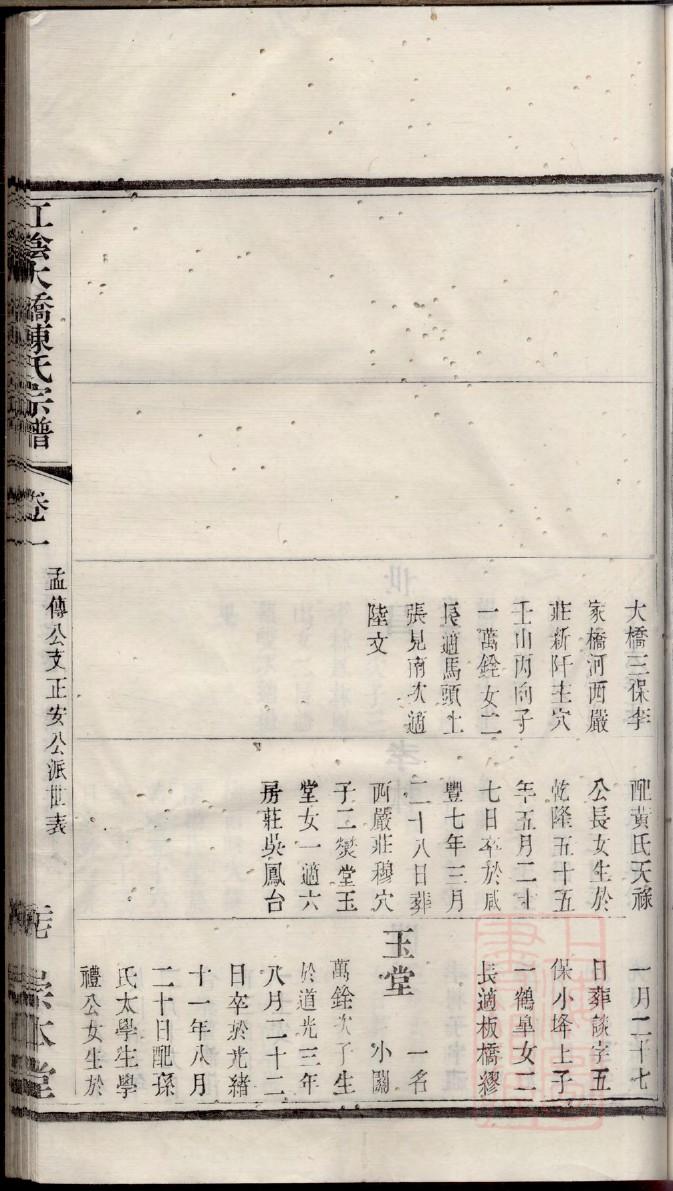 大橋三保李
家橋河西嚴
莊新阡主穴
壬山丙向子
一萬銓女二
長適馬頭上
張見南次適
陸文
配黃氏天祿
公長女生於
乾隆五十五
年五月二十
七日卒於咸
豐七年三月
二十八日葬
西嚴莊穆穴
子二燮堂玉
堂女一適六
房莊吳鳳台
一月二十七
日葬談字五
保小埄上子
一鶴皐女二
長適板橋繆
玉堂 一名小闓
萬銓次子生
於道光三年
八月二十二
日卒於光緒
十一年八月
二十日配孫
氏太學生學
禮公女生於
江陰大橋陳氏宗譜
卷一
孟傳公支正安公派世表
崇本堂